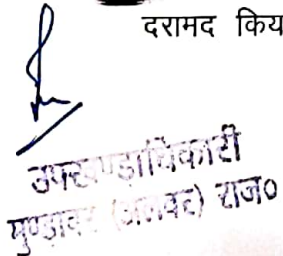 दरामद किय
उपखण्डाधिकारी
मुण्डावर (अलवर) राज०